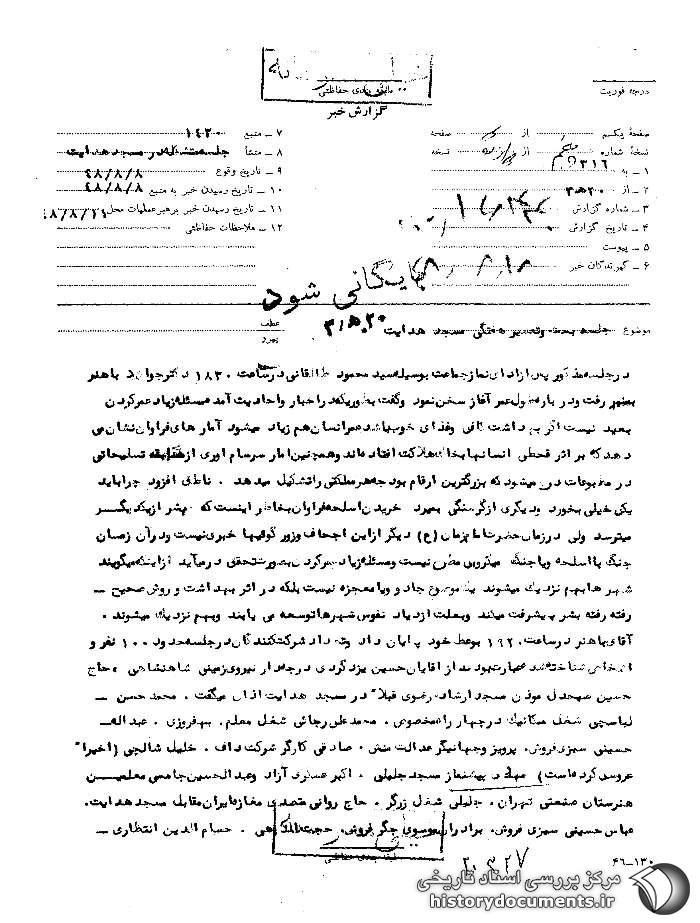 طبقه بندی حفاظتی
گزارش خبر
درجه فوریت
صفحه یکم از صفحه
نسخه شماره از نسخه
۱ ـ به ۳۱۶
۲ ـ از ۲۰ ه ۳
۳ ـ شماره گزارش
۴ ـ تاریخ گزارش
۵ ـ پیوست
۶ ـ گیرندگان خبر
۷ ـ منبع ۱۴۳۰
۸ ـ منشأ جلسه متشکله در مسجد هدایت
۹ ـ تاریخ وقوع ۴۸/۸/۸
۱۰ ـ تاریخ رسیدن خبر به منبع ۴۸/۸/۸
۱۱ ـ تاریخ رسیدن خبر برهبر عملیات محل
۱۲ ـ ملاحظات حفاظتی
بایگانی شود
موضوع جلسه بحث و تفسیر هفتگی مسجد هدایت
عطف
پیرو
در جلسه مذکور پس از ادای نماز جماعت بوسیله سید محمود طالقانی در ساعت ۱۸۳۰ دکتر جواد باهنر
بمنبر رفت و درباره طول عمر آغاز سخن نمود وگفت بطوریکه در اخبار و احادیث آمده مسئله زیاد عمر کردن
بعید نیست اگر بهداشت کافی وغذای خوب باشد عمر انسان هم زیاد میشود آمار های فراوان نشان می
دهد که بر اثر قحطی انسانها بخاک هلاکت افتاده اند وهمچنین آمار سرسام آوری از مسابقه تسلیحاتی
در مطبوعات درج میشود که بزرگترین ارقام بودجه هر مملکتی را تشکیل میدهد . ناطق افزود چرا باید
یکی خیلی بخورد ودیگری از گرسنگی بمیرد خریدن اسلحه فراوان بخاطر اینست که بشر از یکدیگر
میترسد ولی در زمان حضرت امام زمان (ع) دیگر از این اجحاف وزور گوئیها خبری نیست ودر آن زمان
جنگ با اسلحه ویا جنگ میکروبی مطرح نیست ومسئله زیاد عمر کردن بصورت تحقق در میآید از اینکه میگویند
شهرها بهم نزدیک میشوند یک موضوع جادو ویا معجزه نیست بلکه در اثر بهداشت و روش صحیح ـ
رفته رفته بشر پیشرفت میکند وبعلت ازدیاد نفوس شهرها توسعه می یابند وبهم نزدیک میشوند .
آقای باهنر در ساعت ۱۹۲۰ بوعظ خود پایان داد وتعداد شرکت کنندگان در جلسه حدود ۱۰۰ نفر و
اشخاص شناخته شده عبارت بودند از آقایان حسین یزدگردی درجه دار نیروی زمینی شاهنشاهی ، حاج
حسین صیحدل موذن مسجد ارشاد، رضوی قبلا" در مسجد هدایت اذان میگفت . محمد حسن ـ
لباسچی شغل مکانیک در چهار راه مخصوص . محمد علی رجائی شغل معلم. بهفروزی . عبداله ـ
حسینی سبزی فروش. پرویز وجهانگیر عدالت منش . صادقی کارگر شرکت داف . خلیل شالچی (اخیرا"
عروسی کرده است) پیشنماز مسجد جلیلی . اکبر عسگری آزاد وعبدالحسین جامعی معلمین
هنرستان صنعتی تهران. جلیلی شغل زرگر . حاج روانی متصدی مغازه ایران مقابل مسجد هدایت.
عباس حسینی سبزی فروش. برادران موسوی جگر فروش. حسام الدین انتظاری ـ
طبقه بندی حفاظتی
۲۰۳۲۷
۴۶ـ۱۳۰
مرکز بررسی اسناد تاریخی
historydocuments.ir